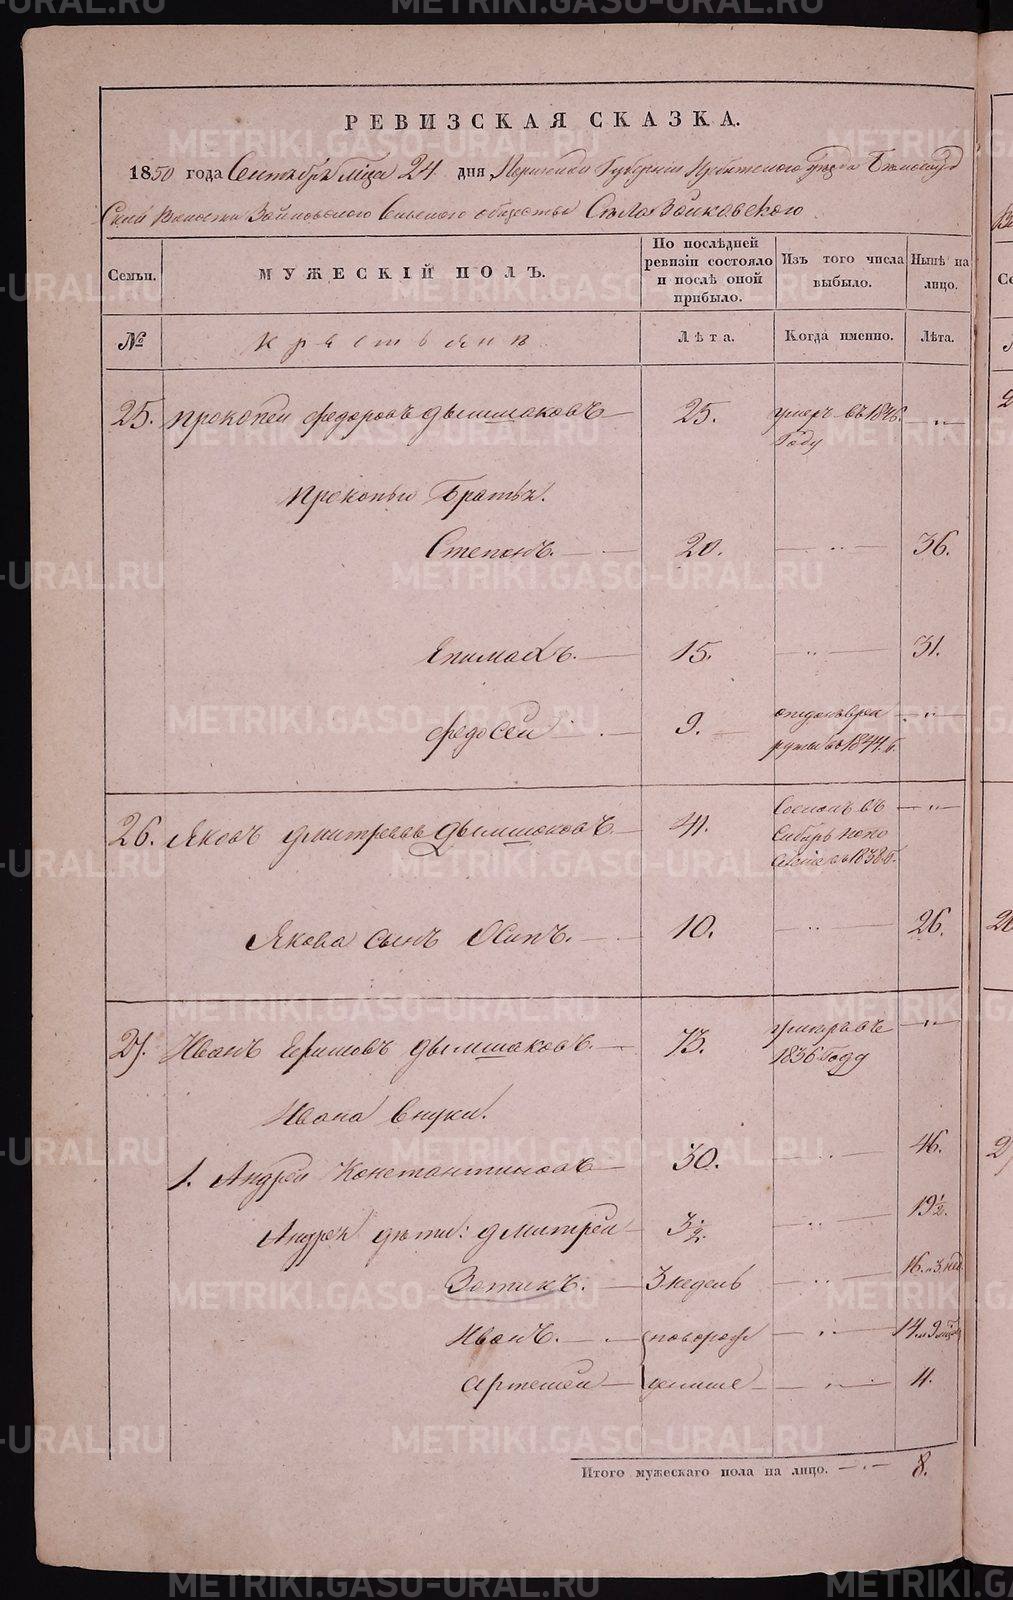 РЕВИЗСКАЯ СКАЗКА.
1850 года Сентября м͠ца 24 дня Пермской Губернии Ирбитского уезда Белослуд
ской Волости Зайковского Сельского общества Села Зайковского
Семьи. МУЖЕСКІЙ ПОЛЪ. По послѣдней ревизіи состояло и послѣ оной прибыло. Изъ того числа выбыло. Нынѣ на лицо.
№ Крестьянъ Лѣта. Когда именно. Лѣта.
25. Прокопей Федоровъ Дымшаковъ — 25. умеръ въ 1846. Году — „ —
Прокопьи Братья.
Степанъ. — 20. — „ — 36.
Епимахъ. — 15. — „ — 31.
Федосей — 9. отданъ в рек руты въ 1844. г. — „ —
26. Яковъ Дмитревъ Дымшаковъ — 41. Сосланъ въ Сибирь на по въ 1838 г. — „ —
Якова сынъ Осипъ. — 10. — „ — 26.
27. Иванъ Ефимовъ Дымшаковъ. — 73. умиравъ 1836 Году — „ —
Ивана Внуки.
1. Андрей Константиновъ — 30. — „ — 46.
Андрея дѣти: Дмитрей — 3½. — „ — 19½.
Зотикъ. — 3 недель — „ — 16. и 3 нед
Иванъ. — новорож — „ — 14. и 9 м
Артемей — денные — „ — 11.
Итого мужескаго пола на лицо. — „ — 8.
METRIKI.GASO-URAL.RU